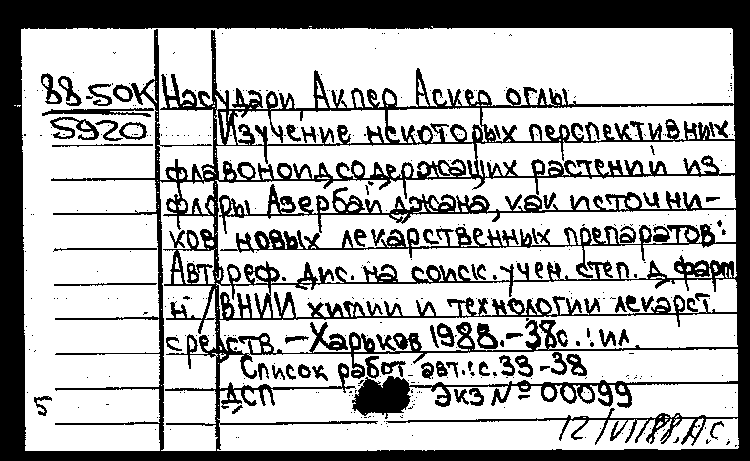 88-50К Насудари, Акпер Аскер оглы.
5920 Изучение некоторых перспективных
флавоноидсодержащих растений из
флоры Азербайджана, как источни-
ков новых лекарственных препаратов:
Автореф. дис. на соиск. учен. степ. д. фарм.
н. / ВНИИ химии и технологии лекарст.
средств. – Харьков 1988. – 38с.: ил.
Список работ авт.: с. 33-38
ДСП Экз № 00099
5
12/VII88. А.С.